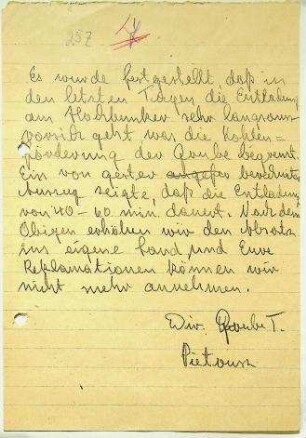 257
Es wurde festgestellt, daß in
den letzten Tagen die Entladung
am Hochbunker sehr langsam
vorsich geht was die Kohlen-
förderung der Grube begrenzt.
Ein von gestern
zeigte, daß die Entladung
von 40-60 min dauert. Nach dem
Obigen erheben wir den Absatz
ins eigene Hand und Eure
Reklamationen können wir
nicht mehr annehmen.
Dir. Grube T.